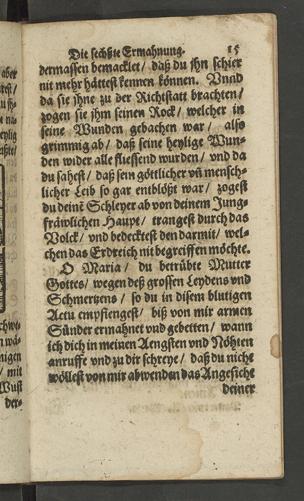 Die sechßte Ermahnung. 15
dermassen bemacklet / daß du jhn schier
nit mehr hättest kennen können. Vnnd
da sie jhne zu der Richtstatt brachten /
zogen sie jhm seinen Rock / welcher in
seine Wunden gebachen war / also
grimmig ab / daß seine heylige Wun-
den wider alle fliessend wurden / vnd da
du sahest / daß sein göttlicher vñ mensch-
licher Leib so gar entblößt war / zogest
du deinẽ Schleyer ab von deinem Jung-
fräwlichen Haupt / trangest durch das
Volck / vnd bedecktest den darmit / wel-
chen das Erdreich nit begreiffen möchte.
O Maria / du betrübte Mutter
Gottes / wegen deß grossen Leydens vnd
Schmertzens / so du in disem blutigen
Actu empfiengest / biß von mir armen
Sünder ermahnet vnd gebetten / wann
ich dich in meinen Aengsten vnd Nöhten
anruffe vnd zu dir schreye / daß du nicht
wöllest von mir abwenden das Angesicht
deiner
aber
heylig
mit
Wust
der-